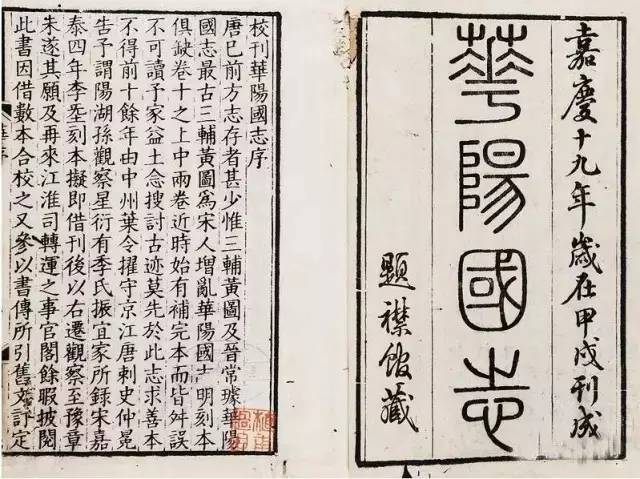 嘉慶十九年歲在甲戌刊成
華陽國志
題襟館藏
校刊華陽國志序
唐已前方志存者甚少惟三輔黃圖及晉常璩華陽
國志最古三輔黃圖爲宋人增亂華陽國志明刻本
俱缺卷十之上中兩卷近時始有補完本而皆舛誤
不可讀予家益土念搜討古迹莫先於此志求善本
不得前十餘年由中州葉令擢守京江唐刺史仲冕
告予謂陽湖孫觀察星衍有季氏振宜家所錄宋嘉
泰四年李𡌴刻本擬即借刊後以右遷觀察至豫章
未遂其願及再來江淮司轉運之事官閣餘暇披閱
此書因借數本合校之又參以書傳所引舊文評定